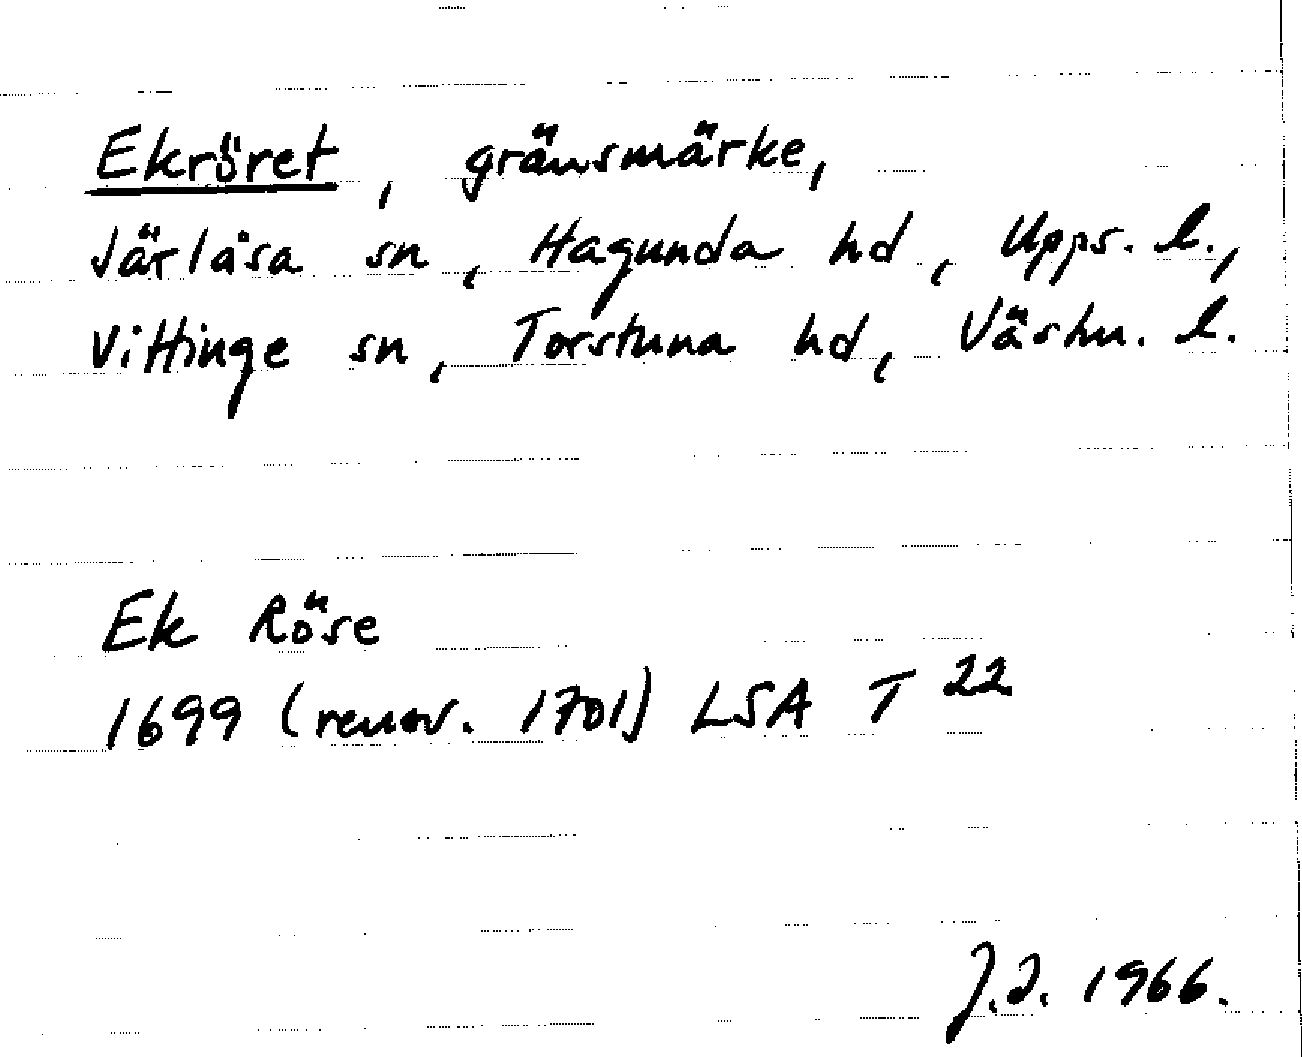 Ekröret, gränsmärke,
Järlåsa sn, Hagunda hd, Upps. l.,
Vittinge sn, Torstuna hd, Västm. l.
Ek Röse
1699 (renov. 1701) LSA T 22
J.I. 1966.